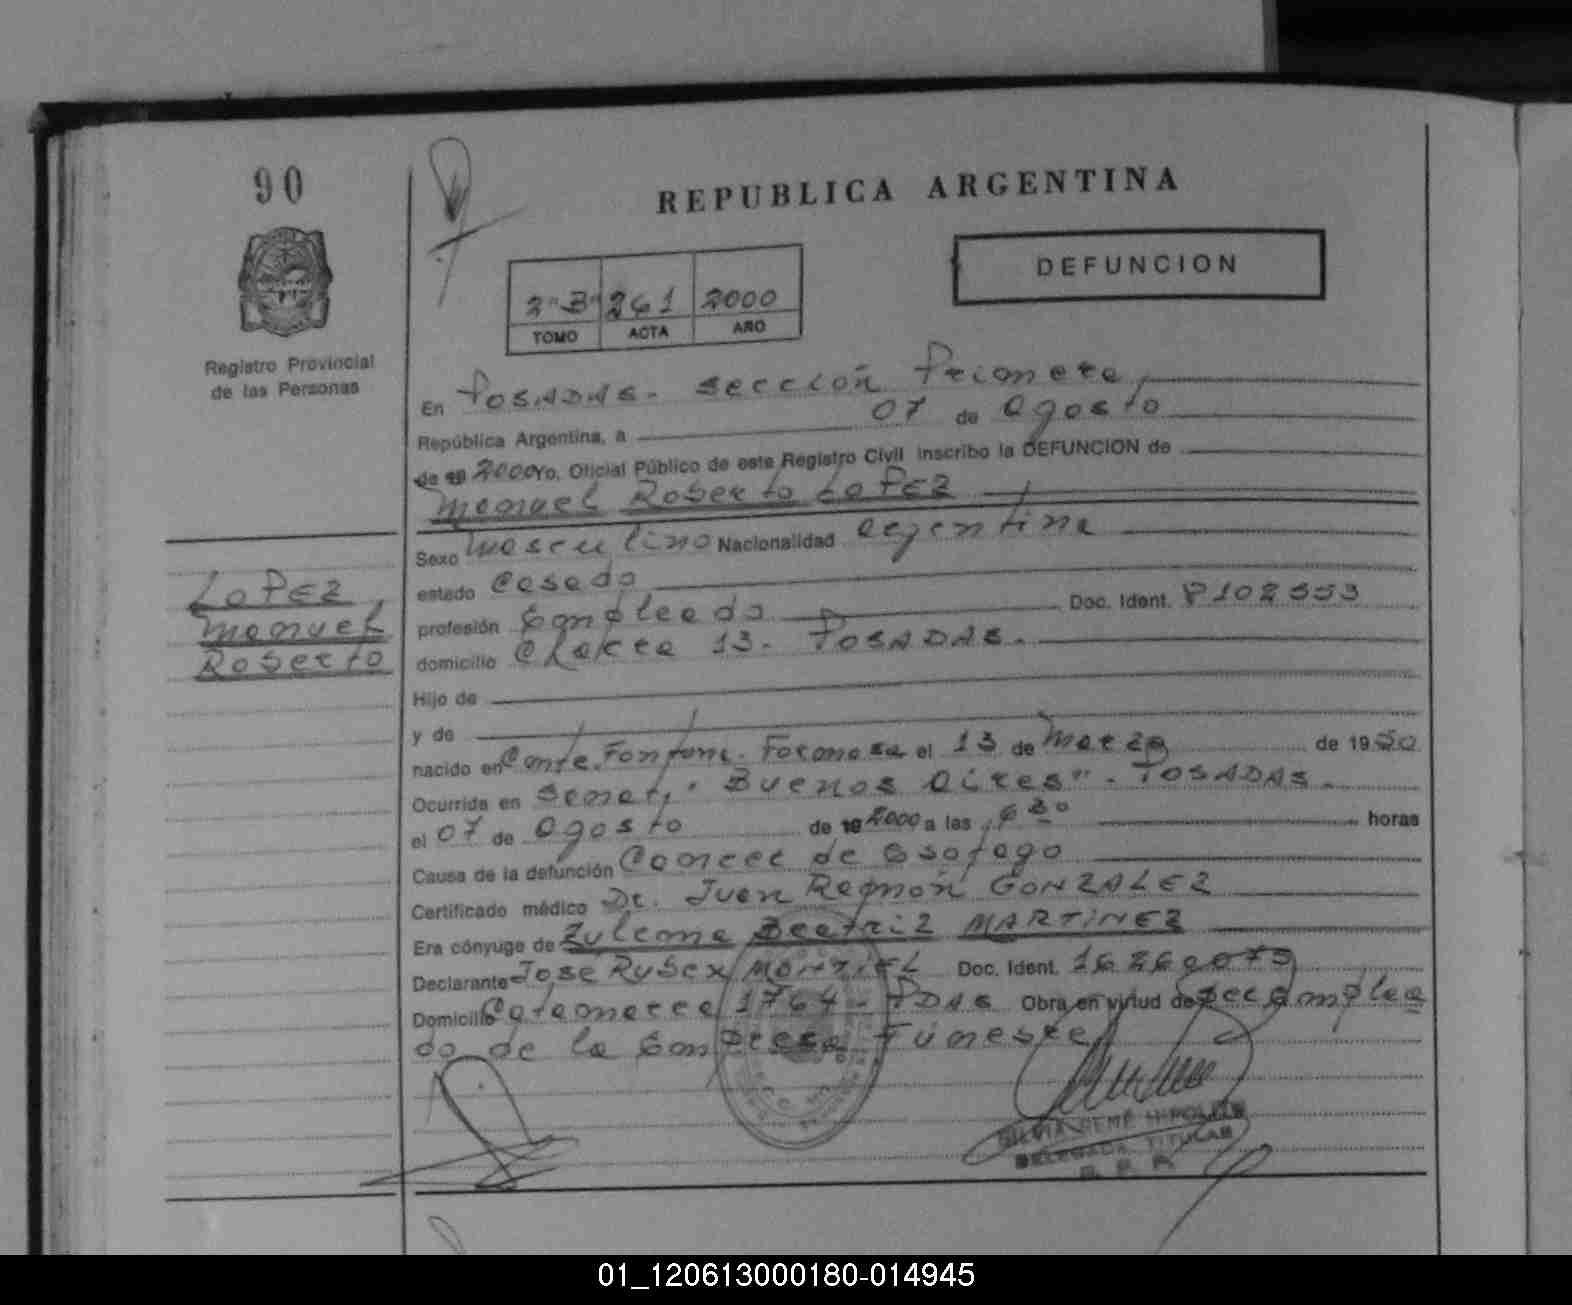 90
REPUBLICA ARGENTINA
DEFUNCION
2"B" 261 2000
TOMO ACTA AÑO
Registro Provincial
de las Personas
En POSADAS. sección Primera,
República Argentina, a 07 de agosto
de 19 2000 Yo, Oficial Público de este Registro Civil inscribo la DEFUNCION de
Manuel Roberto LOPEZ
Sexo masculino Nacionalidad argentina
estado Casado
profesión Empleado Doc. Ident. 8102553
domicilio Chakra 13. POSADAS.
LOPEZ
Manuel
Roberto
Hijo de
y de
nacido en Cmte. Fontana. Formosa el 13 de Marzo de 1950
Ocurrida en Sanat. "Buenos Aires". POSADAS.
el 07 de agosto de 19 2000 a las 6 30 horas
Causa de la defunción Cancer de Esofago
Certificado médico Dr. Juan Ramón GONZALEZ
Era cónyuge de Zulema Beatriz MARTINEZ
Declarante José Ruben Doc. Ident.
Domicilio Catamarca 1764 - PDAS Obra en virtud de ser emplea
do de la Empresa Funebre
SILVIA HIPOLITO
DELEGADA TITULAR
R. P. P.
01_120613000180-014945